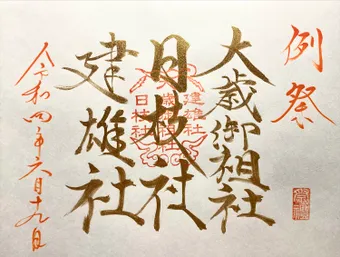 例祭
大歳御祖社
日枝社
建雄社
令和四年六月十九日
建雄社
歳御祖社
日枝社